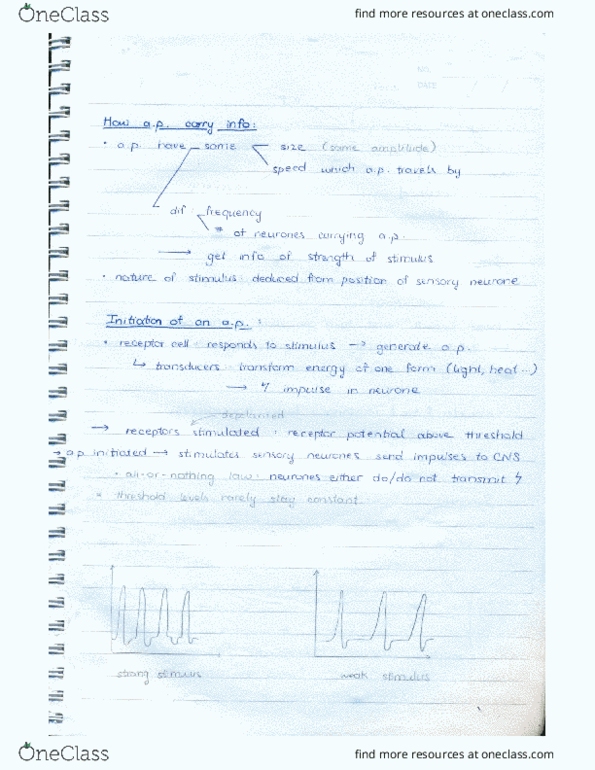 OneClass
find more resources at oneclass.com
NO.
DATE
How a.p. carry info:
• a.p. have same size (same amplitude)
speed which a.p. travels by
dif. frequency
# of neurones carrying a.p.
→ get info of strength of stimulus
• nature of stimulus: deduced from position of sensory neurone
Initiation of an a.p.:
• receptor cell: responds to stimulus → generate a.p.
↳ transducers: transform energy of one form (light, heat...)
→ ϟ impulse in neurone
depolarised
→ receptors stimulated: receptor potential above threshold
→ a.p initiated → stimulates sensory neurones send impulses to CNS
• all-or-nothing law: neurones either do/do not transmit ϟ
* threshold levels rarely stay constant
strong stimulus
weak stimulus
OneClass
find more resources at oneclass.com